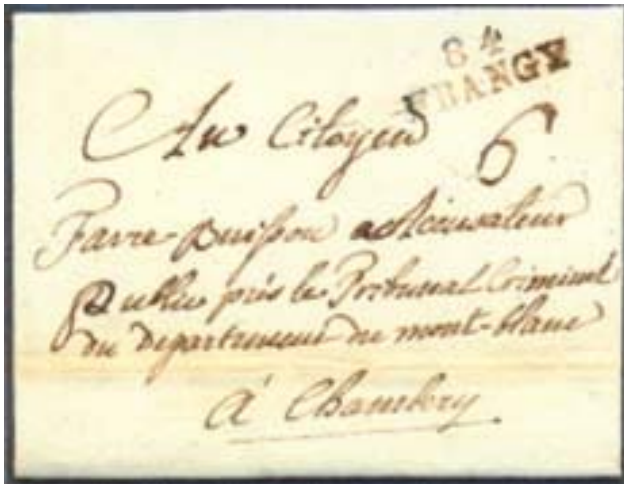 84
FRANGY
Au Citoyen
6
Favre-Buisson accusateur
Public près le Tribunal Criminel
du departement du mont-blanc
à Chambery